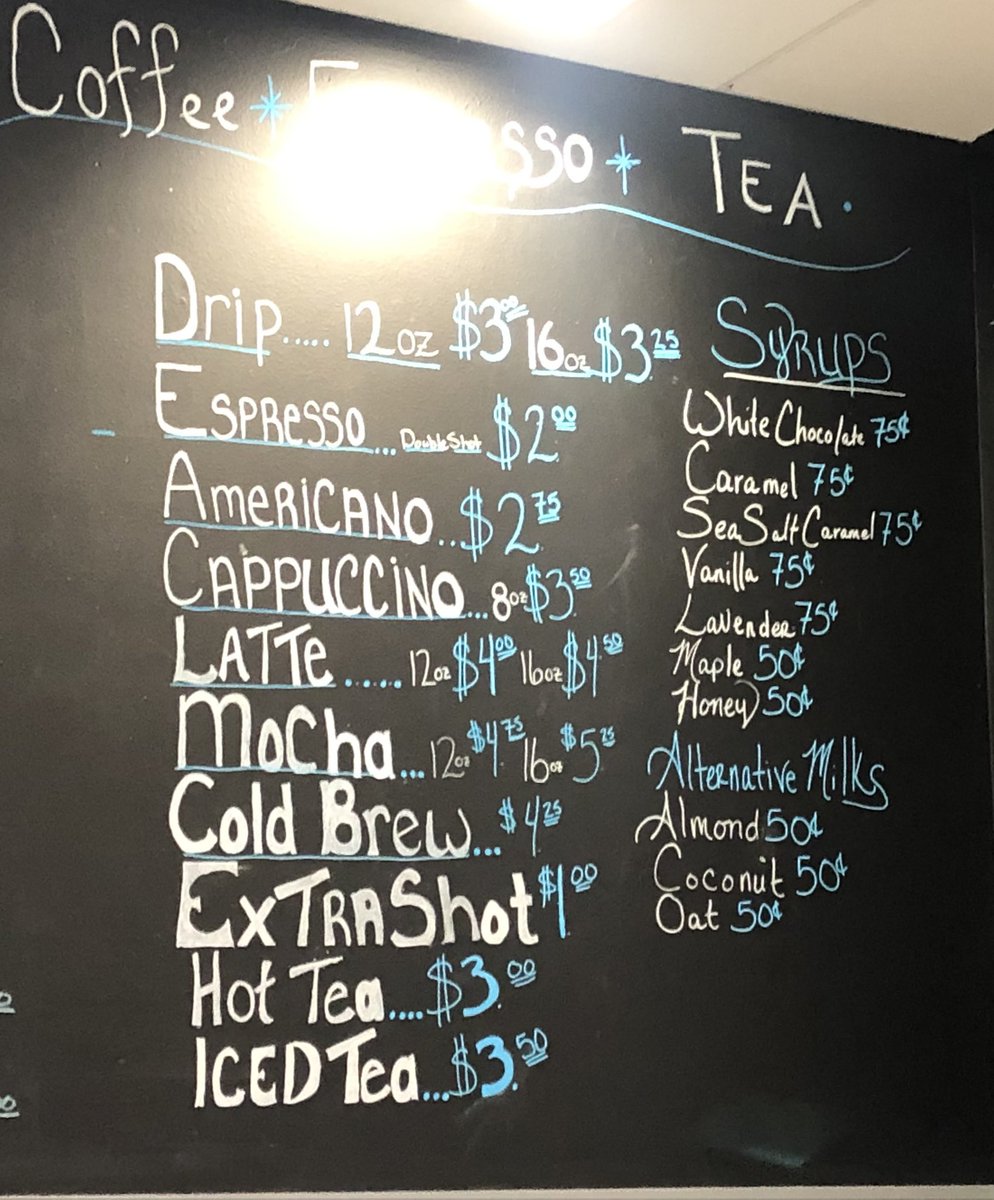 Coffee * sso * TEA .
Drip..... 12oz $3.00 16oz $3.25
Espresso... Double Shot $2.00
Americano... $2.75
Cappuccino... 8oz $3.50
Latte ...... 12oz $4.00 16oz $4.50
Mocha... 12oz $4.75 16oz $5.25
Cold Brew... $4.25
Extra Shot $1.00
Hot Tea.... $3.00
Iced Tea... $3.50
Syrups
White Chocolate 75¢
Caramel 75¢
Sea Salt Caramel 75¢
Vanilla 75¢
Lavender 75¢
Maple 50¢
Honey 50¢
Alternative Milks
Almond 50¢
Coconut 50¢
Oat 50¢